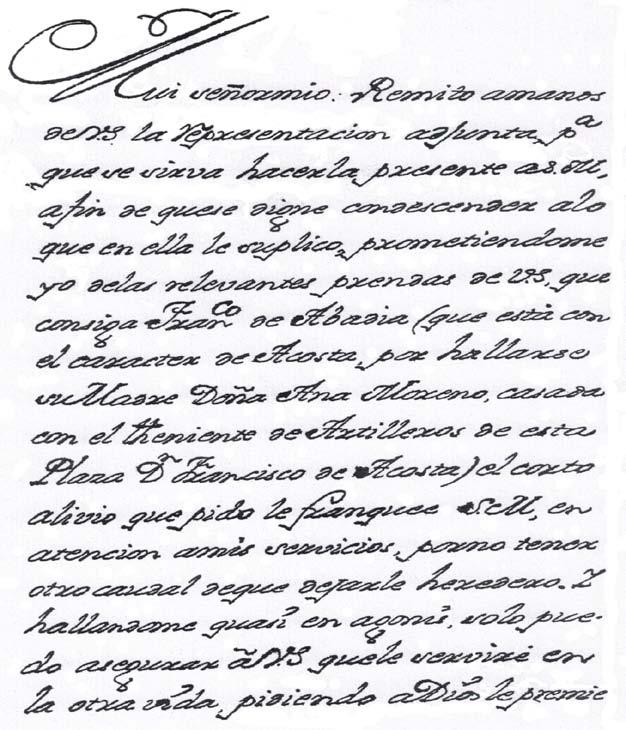 Mui señormio: Remito amanos
de V.S. la representacion adjunta, pª
que se sirva hacerla presente a S.M.,
afin de quese digne condescender alo
que en ella le suplico, prometiendome
yo delas relevantes prendas de V.S. que
consiga Franco de Abadia (que està con
el caracter de Acosta, por hallarse
su Madre Doña Ana Moreno, casada
con el theniente de Artilleros de esta
Plaza Dn Francisco de Acosta) el corto
alivio que pido le franquee S.M., en
atencion amis servicios, porno tener
otro caudal deque dejarle heredero. I
hallandome quasi en agonia, solo pue-
do asegurar a V.S. quele servirè en
la otra vida, pidiendo aDios le premie